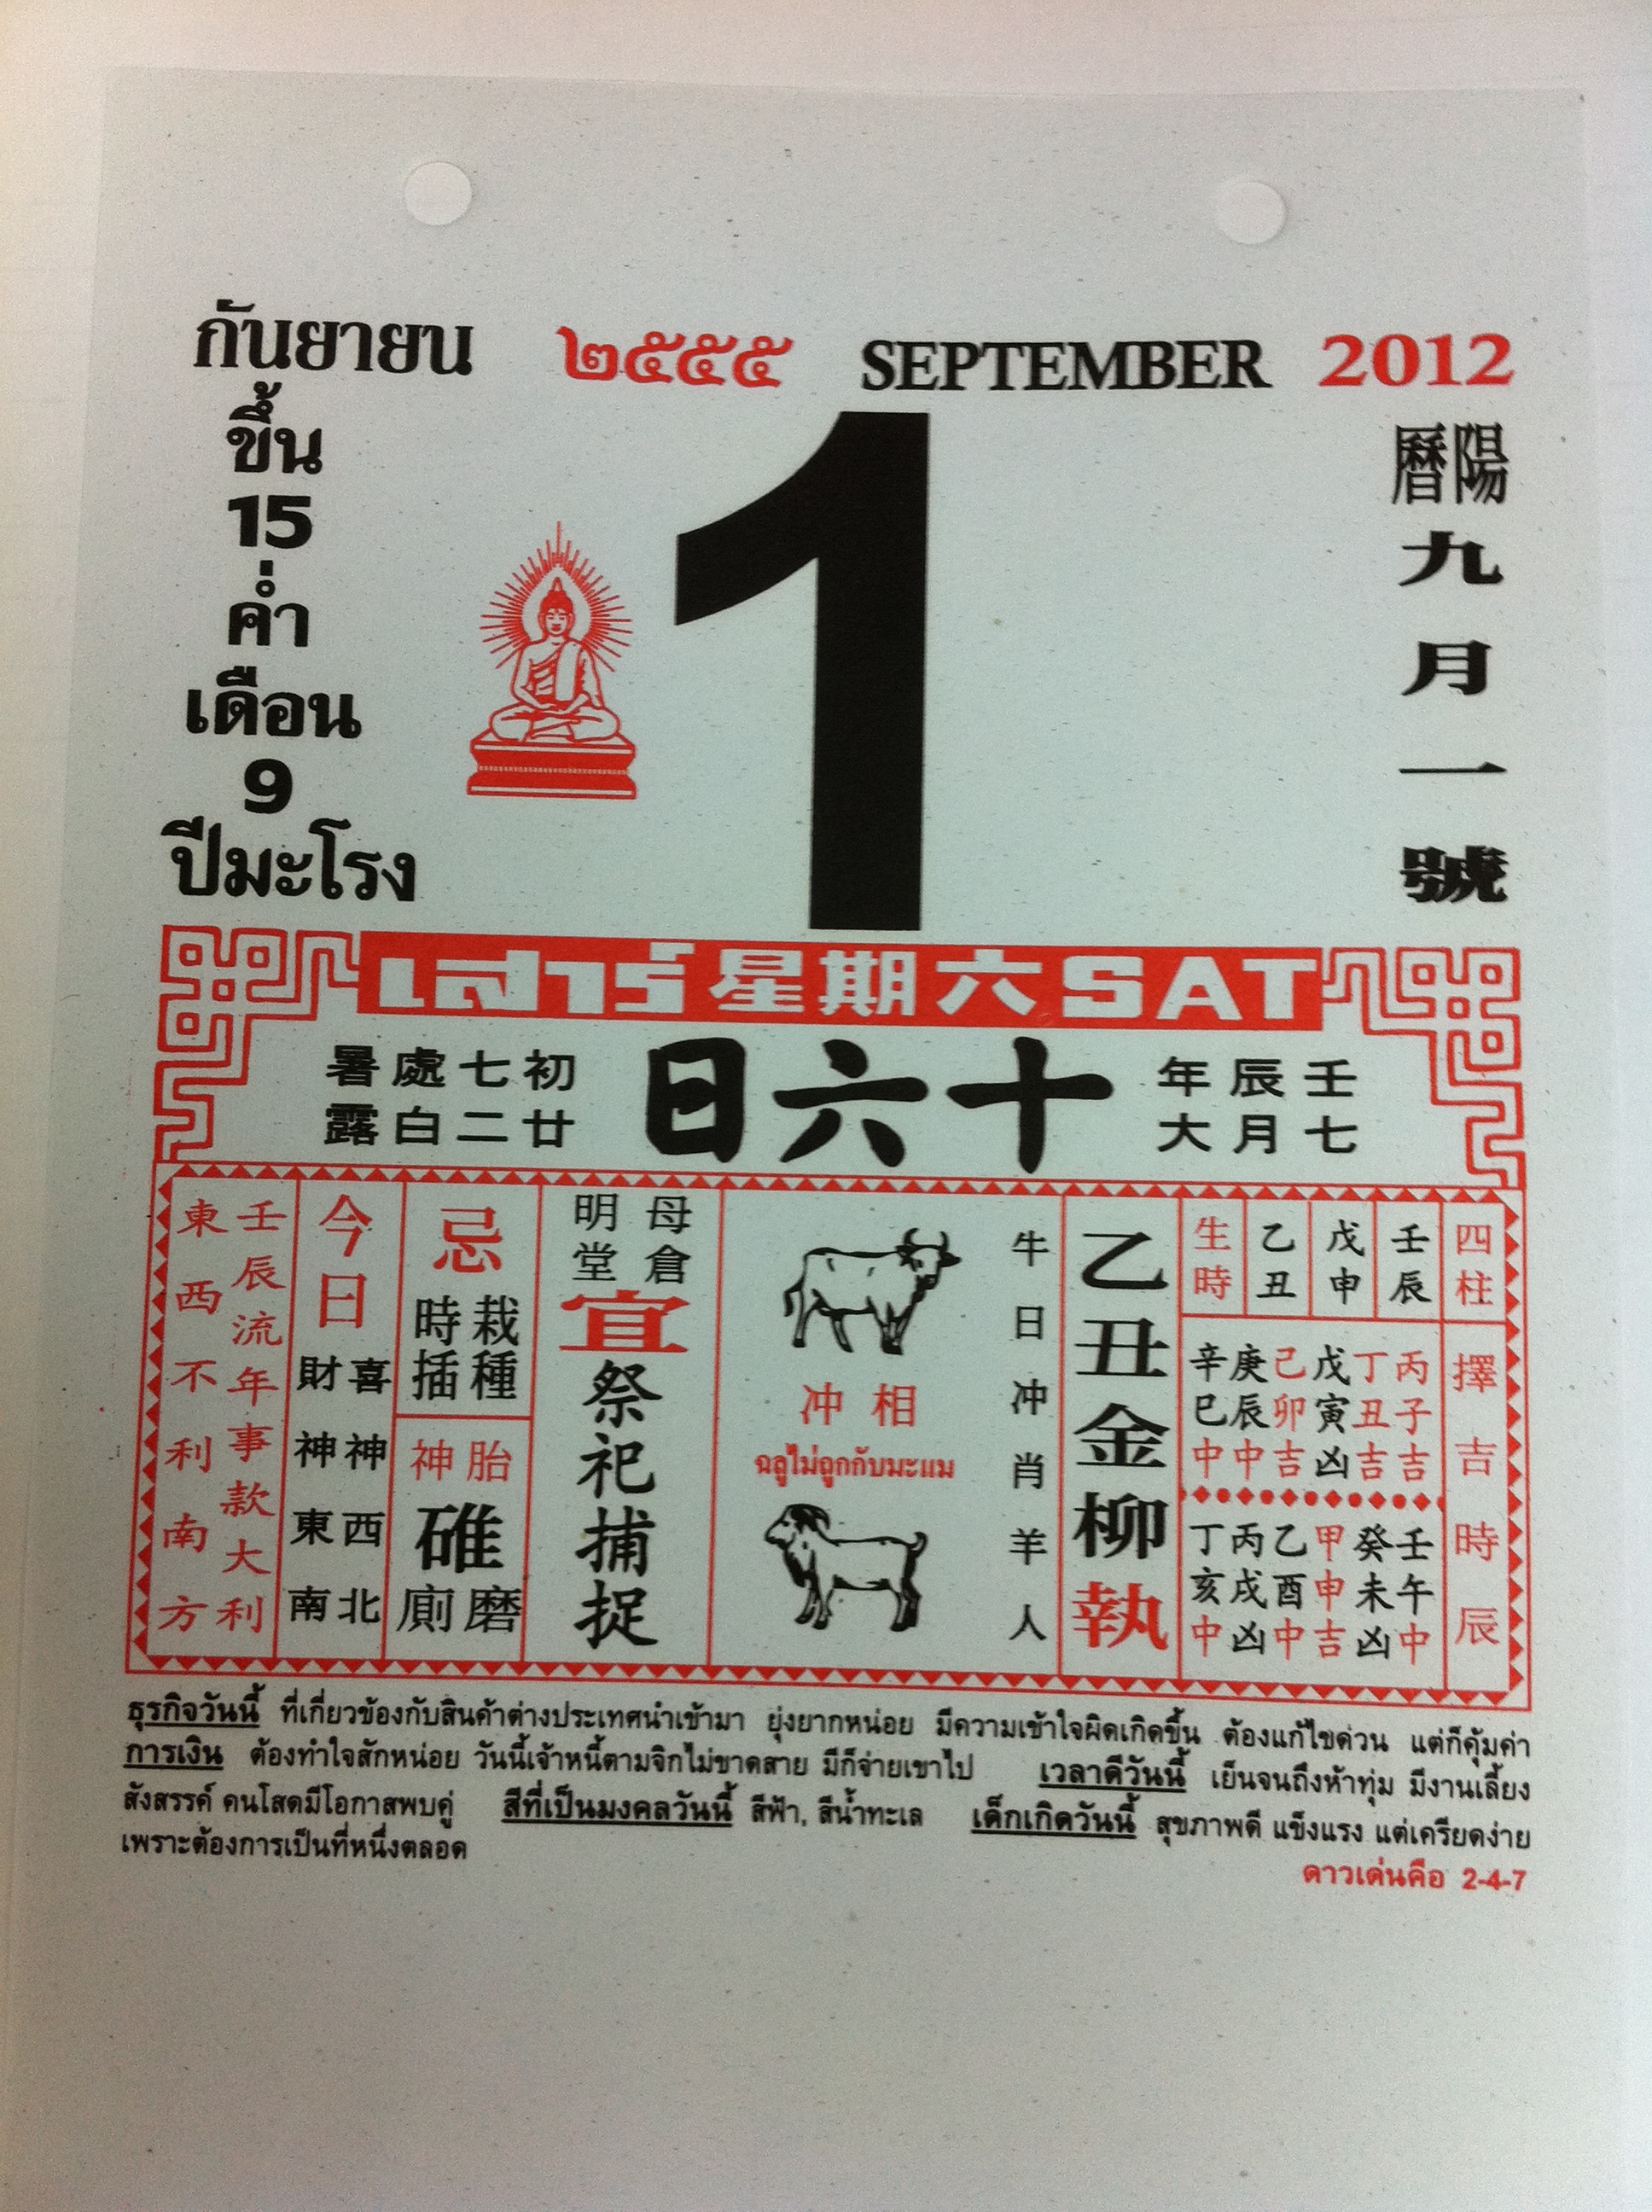 กันยายน ๒๕๕๕ SEPTEMBER 2012
ขึ้น
15
ค่ำ
เดือน
9
ปีมะโรง
1
陽曆
九
月
一
號
เสาร์ 星期六 SAT
壬辰年
七月大
十六日
初七處暑
廿二白露
四柱
壬辰
戊申
乙丑
生時
擇吉時辰
丙子吉
丁丑吉
戊寅凶
己卯吉
庚辰中
辛巳中
壬午中
癸未凶
甲申吉
乙酉中
丙戌凶
丁亥中
乙丑金柳執
牛日冲肖羊人
相冲
ฉลูไม่ถูกกับมะแม
母倉
明堂
宜
祭祀捕捉
忌
栽種
時插
胎神
碓
磨廁
今日
喜神西北
財神東南
壬辰流年事款大利
東西不利南方
ธุรกิจวันนี้ ที่เกี่ยวข้องกับสินค้าต่างประเทศนำเข้ามา ยุ่งยากหน่อย มีความเข้าใจผิดเกิดขึ้น ต้องแก้ไขด่วน แต่ก็คุ้มค่า
การเงิน ต้องทำใจสักหน่อย วันนี้เจ้าหนี้ตามจิกไม่ขาดสาย มีก็จ่ายเขาไป เวลาดีวันนี้ เย็นจนถึงห้าทุ่ม มีงานเลี้ยง
สังสรรค์ คนโสดมีโอกาสพบคู่ สีที่เป็นมงคลวันนี้ สีฟ้า, สีน้ำทะเล เด็กเกิดวันนี้ สุขภาพดี แข็งแรง แต่เครียดง่าย
เพราะต้องการเป็นที่หนึ่งตลอด
ดาวเด่นคือ 2-4-7